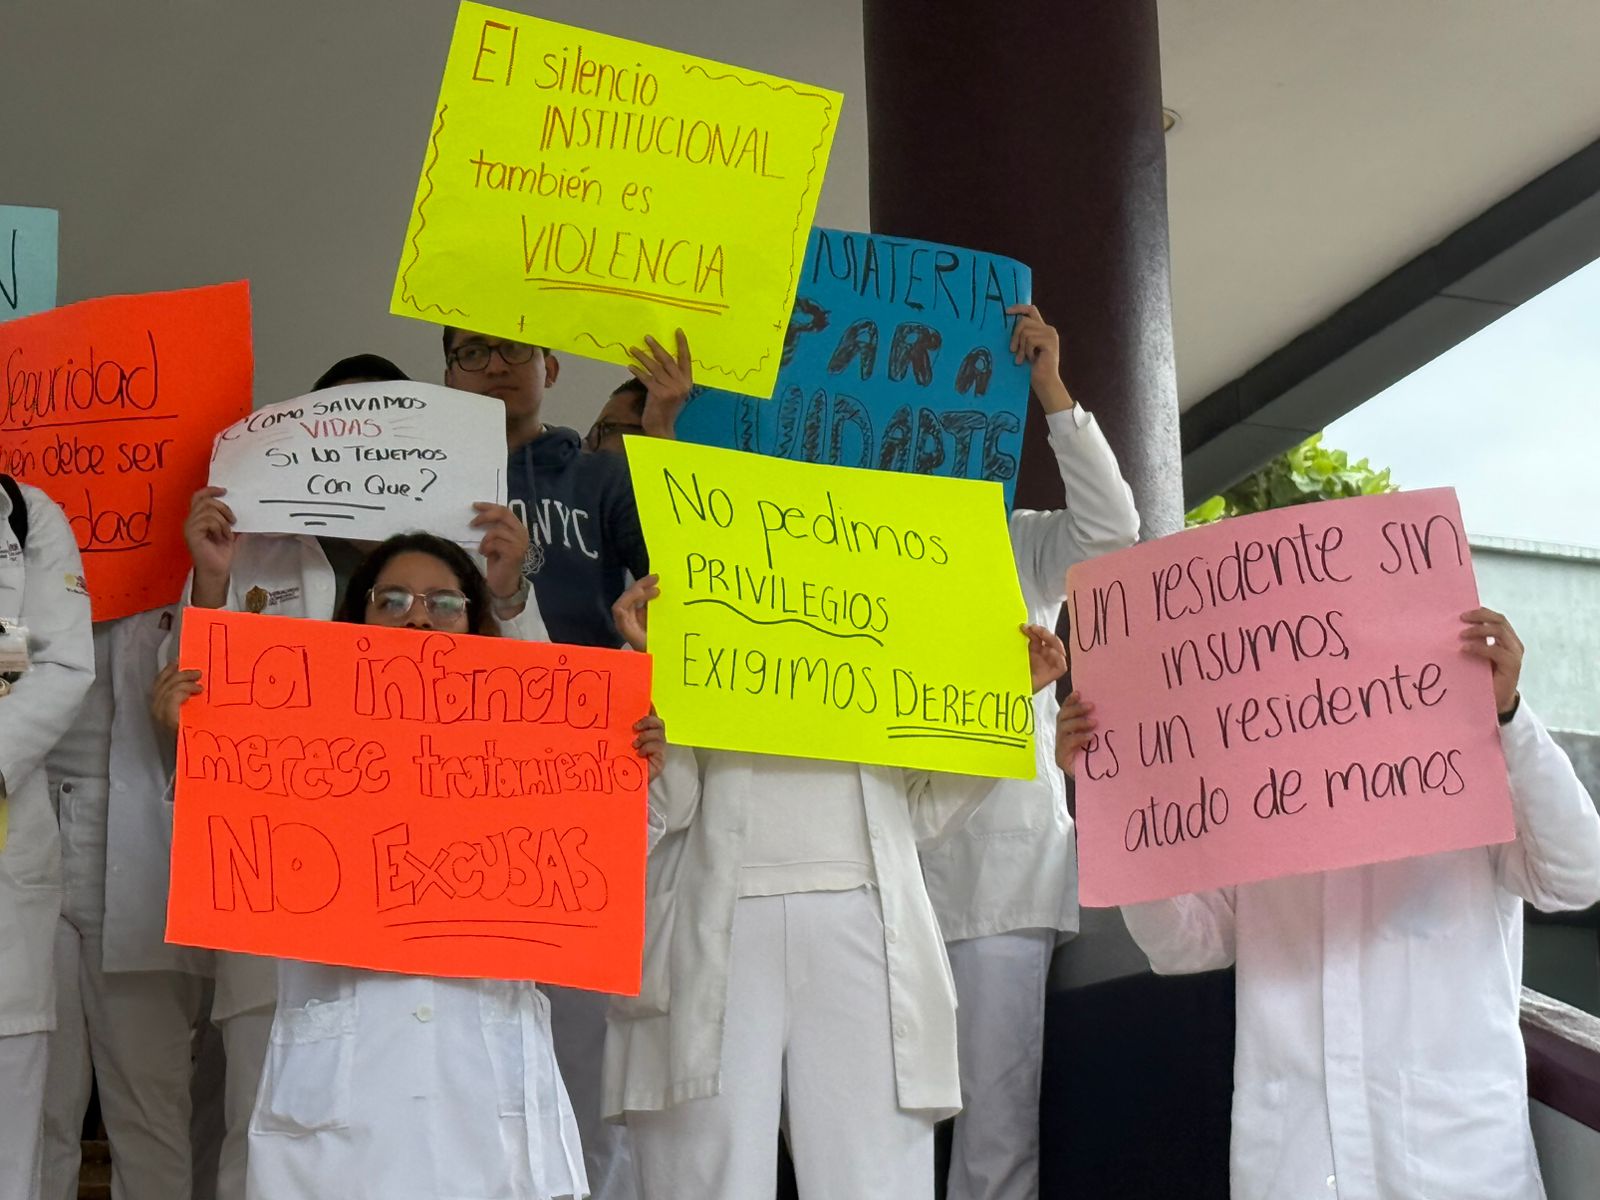 El silencio
INSTITUCIONAL
también es
VIOLENCIA
MATERIAL
PARA
CUIDARTE
N
Seguridad
debe ser
¿COMO SALVAMOS
VIDAS
SI NO TENEMOS
Con Que?
NYC
No pedimos
PRIVILEGIOS
EXIGIMOS DERECHOS
La infancia
merece tratamiento
NO EXCUSAS
un residente sin
insumos,
es un residente
atado de manos